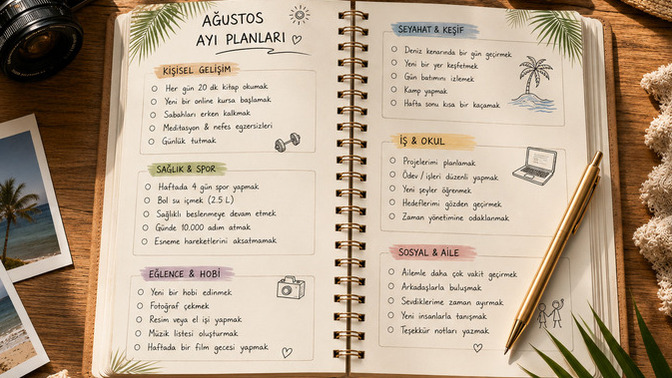 AĞUSTOS
AYI PLANLARI
KİŞİSEL GELİŞİM
Her gün 20 dk kitap okumak
Yeni bir online kursa başlamak
Sabahları erken kalkmak
Meditasyon & nefes egzersizleri
Günlük tutmak
SAĞLIK & SPOR
Haftada 4 gün spor yapmak
Bol su içmek (2.5 L)
Sağlıklı beslenmeye devam etmek
Günde 10.000 adım atmak
Esneme hareketlerini aksatmamak
EĞLENCE & HOBİ
Yeni bir hobi edinmek
Fotoğraf çekmek
Resim veya el işi yapmak
Müzik listesi oluşturmak
Haftada bir film gecesi yapmak
SEYAHAT & KEŞİF
Deniz kenarında bir gün geçirmek
Yeni bir yer keşfetmek
Gün batımını izlemek
Kamp yapmak
Hafta sonu kısa bir kaçamak
İŞ & OKUL
Projelerimi planlamak
Ödev / işleri düzenli yapmak
Yeni şeyler öğrenmek
Hedeflerimi gözden geçirmek
Zaman yönetimine odaklanmak
SOSYAL & AİLE
Ailemle daha çok vakit geçirmek
Arkadaşlarla buluşmak
Sevdiklerime zaman ayırmak
Yeni insanlarla tanışmak
Teşekkür notları yazmak